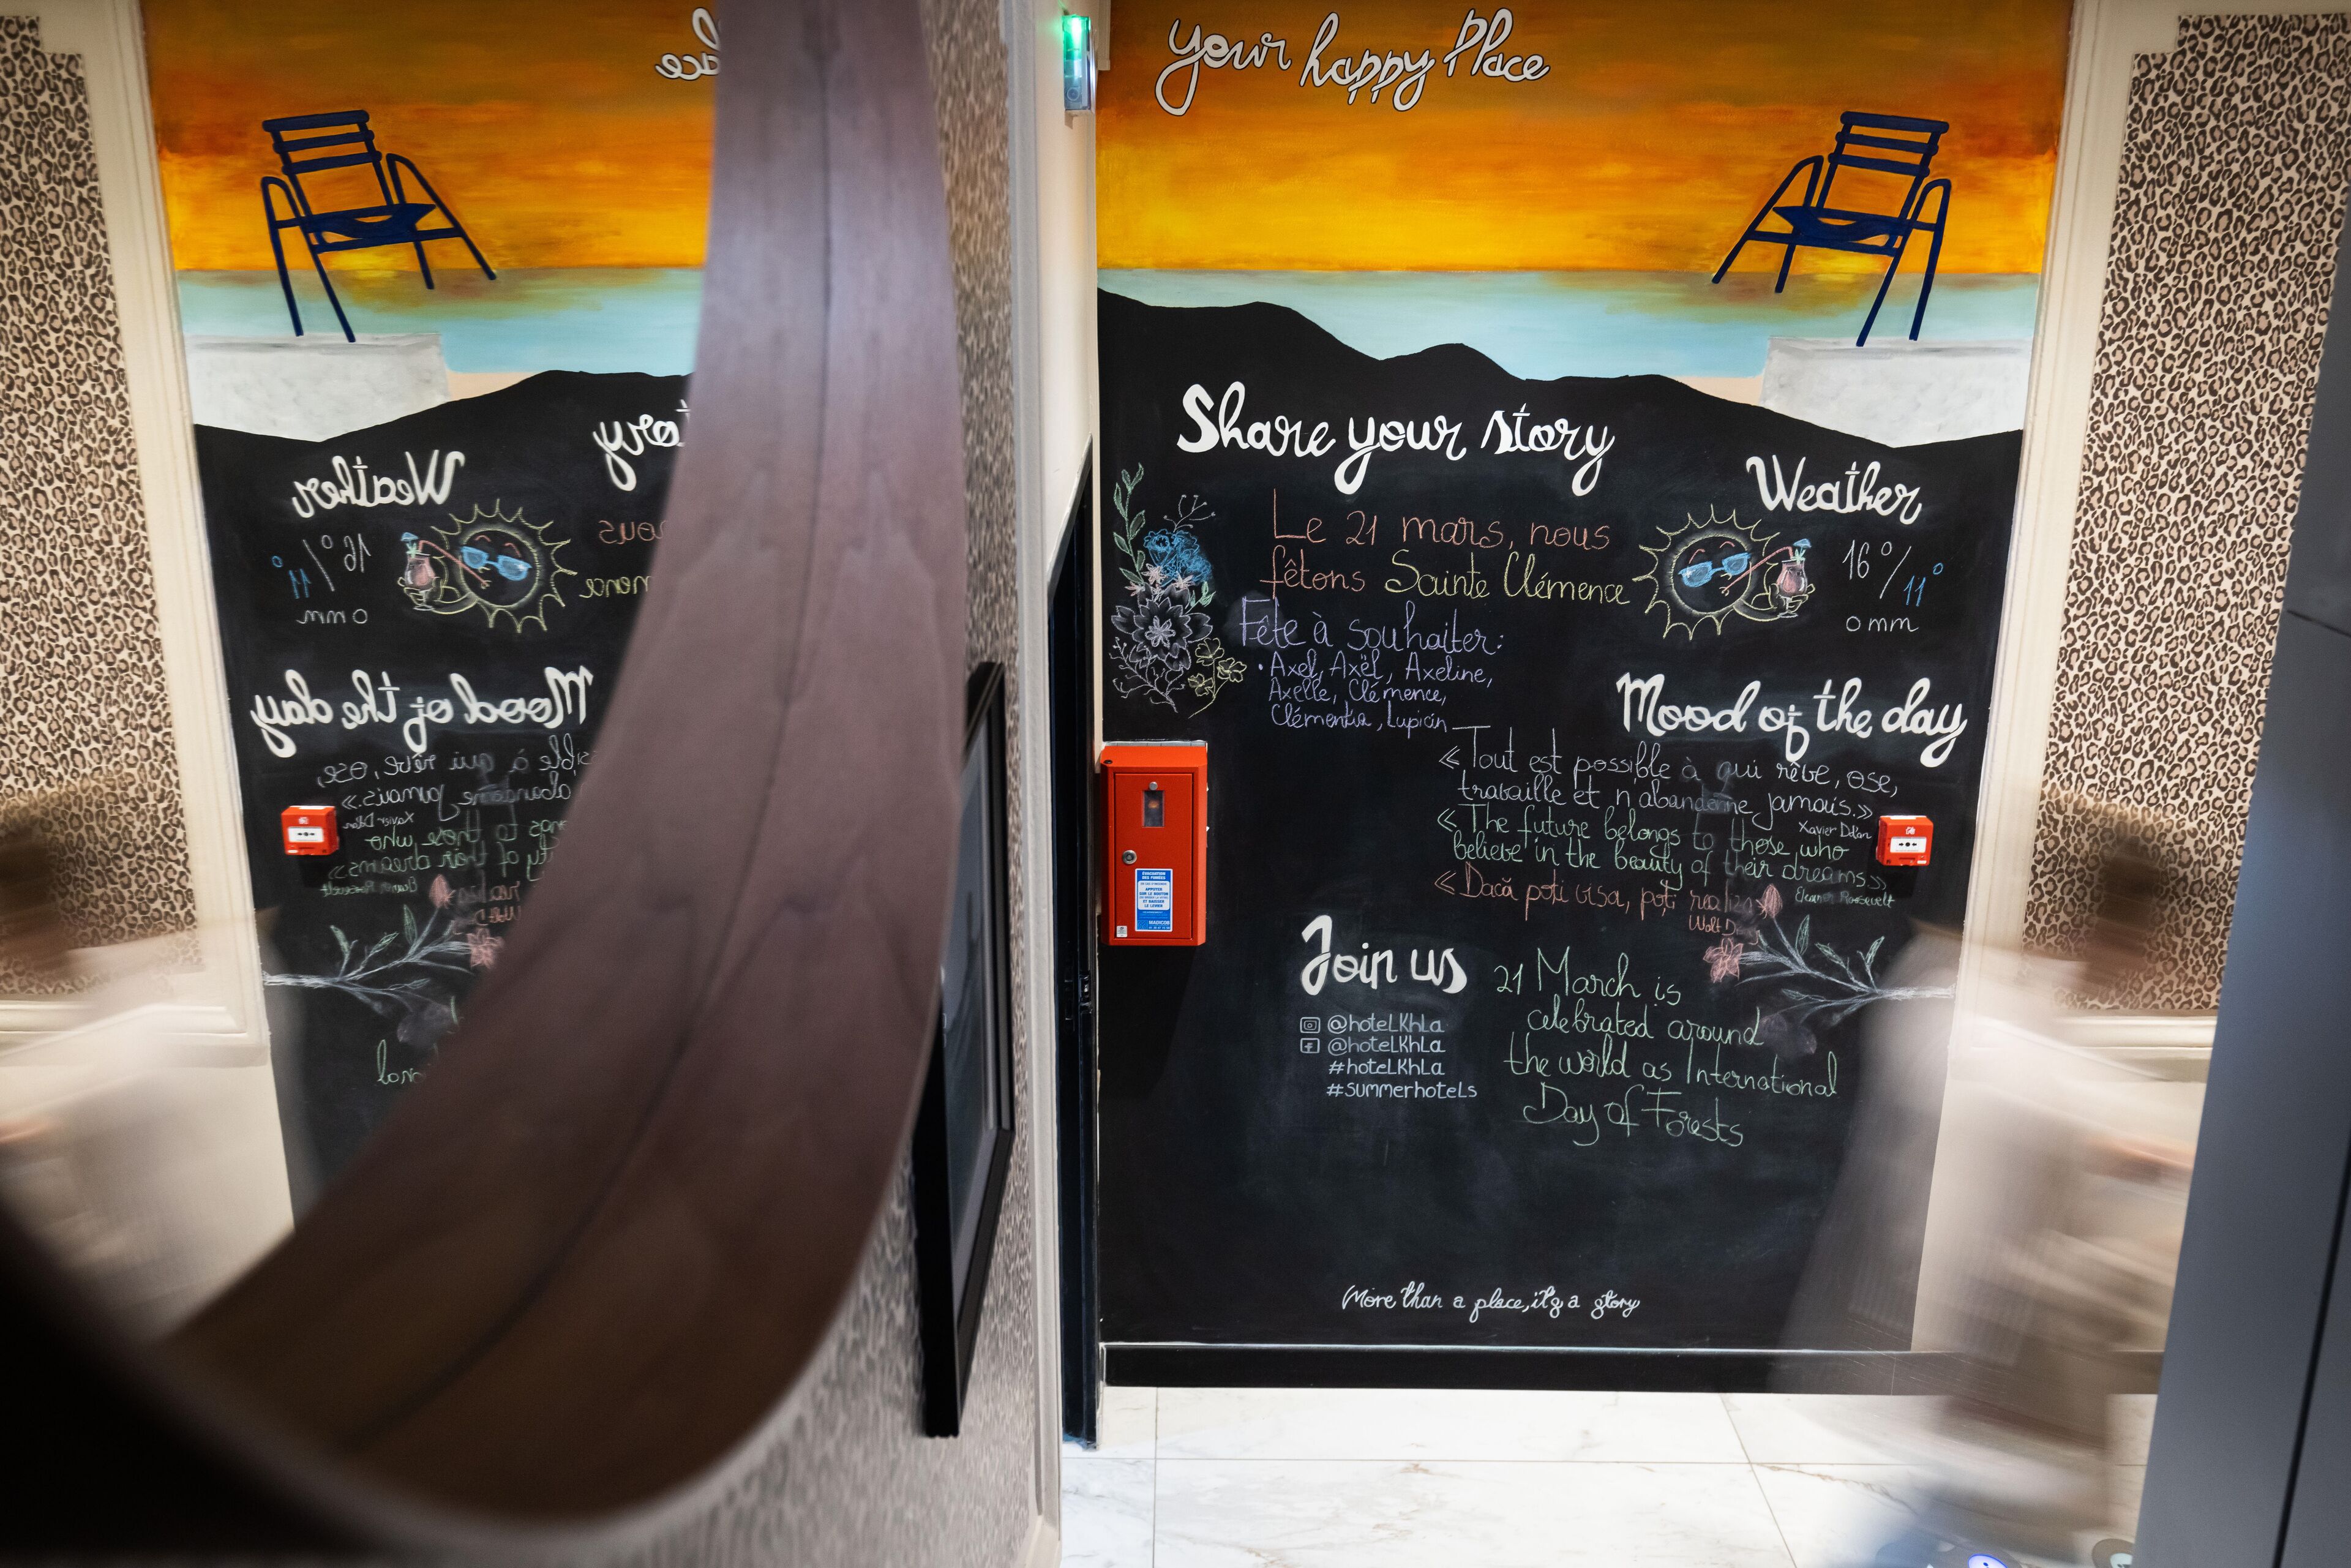 your happy Place
Share your story
Le 21 mars, nous
fêtons Sainte Clémence
Fête à souhaiter:
• Axel, Axël, Axeline,
Axelle, Clémence,
Clémentia, Lupicin
Weather
16°/11°
0 mm
Mood of the day
« Tout est possible à qui rêve, ose,
travaille et n'abandonne jamais.»
Xavier Dolan
« The future belongs to those who
believe in the beauty of their dreams.»
Eleanor Roosevelt
« Dacă poți visa, poți realiza»
Walt
EVACUATION
DES FUMÉES
APPUYER
SUR LE BOUTON
Join us
@hoteLKhLa
@hoteLKhLa
#hoteLKhLa
#summerhoteLs
21 March is
celebrated around
the world as International
Day of Forests
More than a place, it's a story